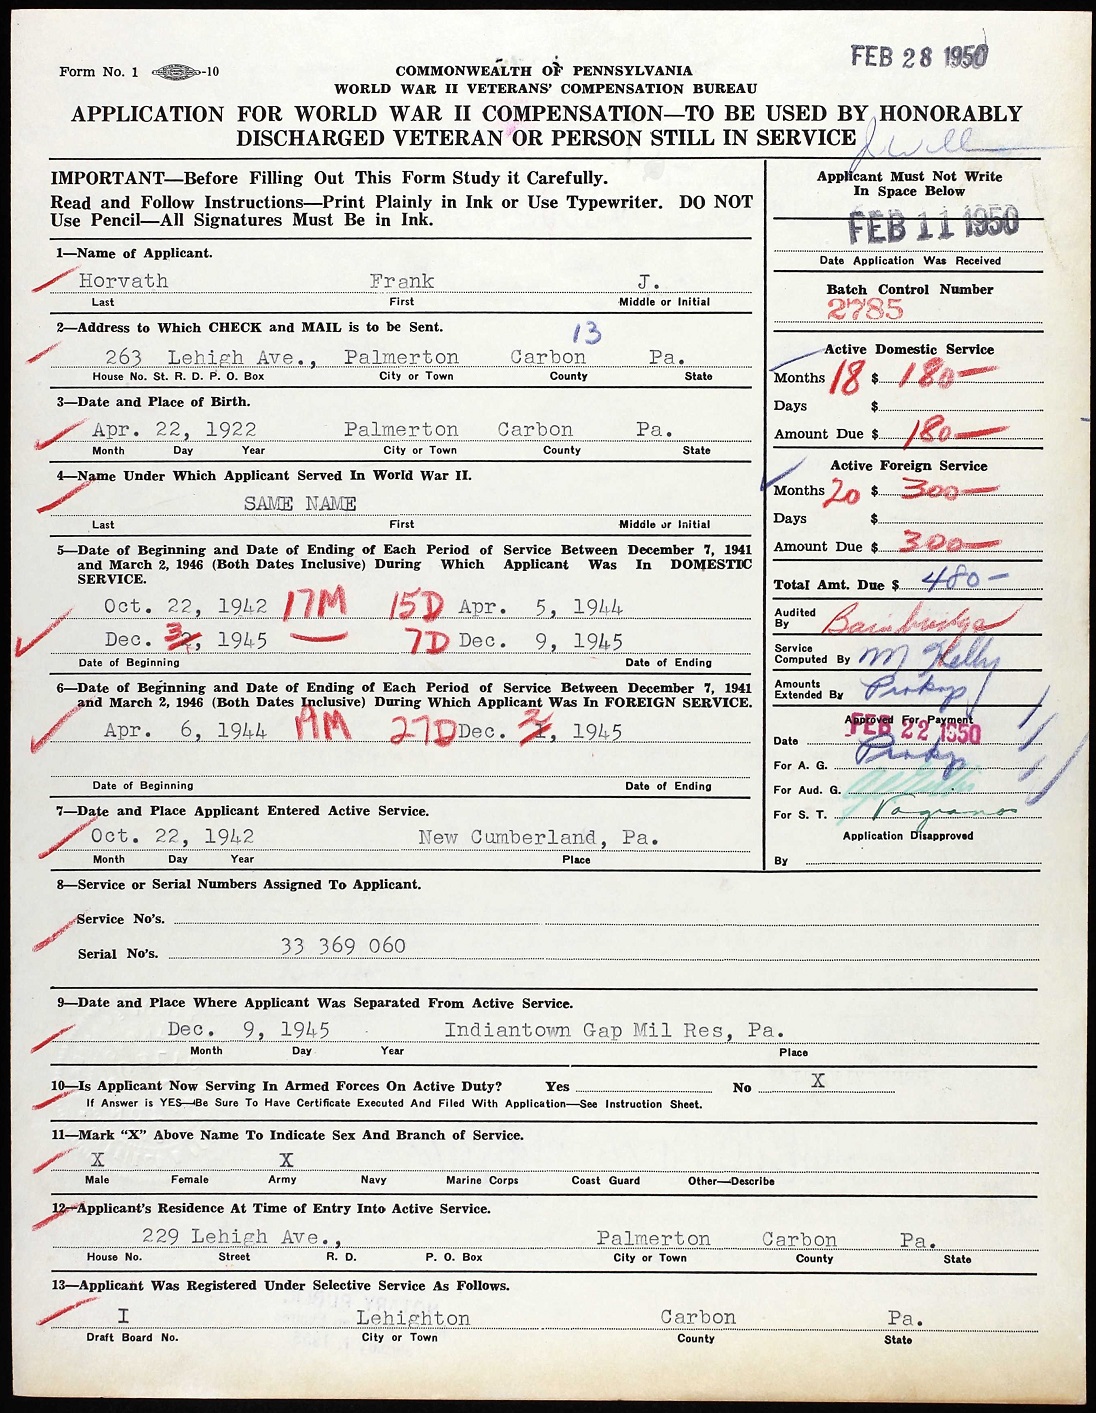 FEB 28 1950
Form No. 1 -10
COMMONWEALTH OF PENNSYLVANIA
WORLD WAR II VETERANS' COMPENSATION BUREAU
APPLICATION FOR WORLD WAR II COMPENSATION—TO BE USED BY HONORABLY
DISCHARGED VETERAN OR PERSON STILL IN SERVICE
IMPORTANT—Before Filling Out This Form Study it Carefully.
Read and Follow Instructions—Print Plainly in Ink or Use Typewriter. DO NOT
Use Pencil—All Signatures Must Be in Ink.
1—Name of Applicant.
Horvath Frank J.
Last First Middle or Initial
2—Address to Which CHECK and MAIL is to be Sent.
13
263 Lehigh Ave., Palmerton Carbon Pa.
House No. St. R. D. P. O. Box City or Town County State
3—Date and Place of Birth.
Apr. 22, 1922 Palmerton Carbon Pa.
Month Day Year City or Town County State
4—Name Under Which Applicant Served In World War II.
SAME NAME
Last First Middle or Initial
5—Date of Beginning and Date of Ending of Each Period of Service Between December 7, 1941
and March 2, 1946 (Both Dates Inclusive) During Which Applicant Was In DOMESTIC
SERVICE.
Oct. 22, 1942 17M 15D Apr. 5, 1944
Dec. 3, 1945 — 7D Dec. 9, 1945
Date of Beginning Date of Ending
6—Date of Beginning and Date of Ending of Each Period of Service Between December 7, 1941
and March 2, 1946 (Both Dates Inclusive) During Which Applicant Was In FOREIGN SERVICE.
Apr. 6, 1944 27D Dec. 2, 1945
Date of Beginning Date of Ending
7—Date and Place Applicant Entered Active Service.
Oct. 22, 1942 New Cumberland, Pa.
Month Day Year Place
Applicant Must Not Write
In Space Below
FEB 11 1950
Date Application Was Received
Batch Control Number
2785
Active Domestic Service
Months 18 $ 180—
Days $
Amount Due $ 180—
Active Foreign Service
Months 20 $ 300—
Days $
Amount Due $ 300—
Total Amt. Due $ 480—
Audited
By Bainbridge
Service
Computed By M Kelly
Amounts
Extended By Prokop
Approved For Payment
Date FEB 22 1950
For A. G. Prokop
For Aud. G.
For S. T.
Application Disapproved
By
8—Service or Serial Numbers Assigned To Applicant.
Service No's.
Serial No's. 33 369 060
9—Date and Place Where Applicant Was Separated From Active Service.
Dec. 9, 1945 Indiantown Gap Mil Res, Pa.
Month Day Year Place
10—Is Applicant Now Serving In Armed Forces On Active Duty? Yes No X
If Answer is YES—Be Sure To Have Certificate Executed And Filed With Application—See Instruction Sheet.
11—Mark "X" Above Name To Indicate Sex And Branch of Service.
X X
Male Female Army Navy Marine Corps Coast Guard Other—Describe
12—Applicant's Residence At Time of Entry Into Active Service.
229 Lehigh Ave., Palmerton Carbon Pa.
House No. Street R. D. P. O. Box City or Town County State
13—Applicant Was Registered Under Selective Service As Follows.
I Lehighton Carbon Pa.
Draft Board No. City or Town County State